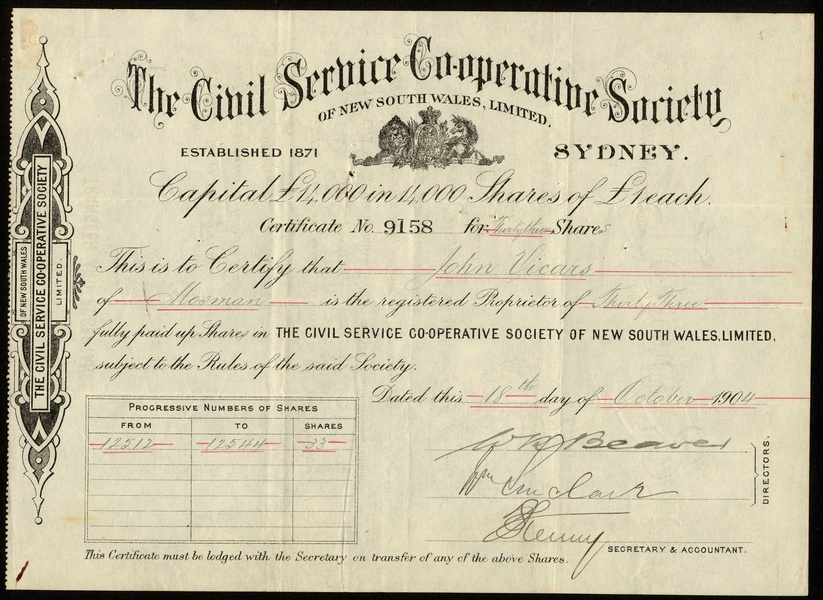 The Civil Service Co-operative Society
OF NEW SOUTH WALES, LIMITED.
ESTABLISHED 1871
SYDNEY.
Capital £14,000 in 14,000 Shares of £1 each.
Certificate No. 9158 for Thirty three Shares
This is to Certify that John Vicars
of Mosman is the registered Proprietor of Thirty Three
fully paid up Shares in THE CIVIL SERVICE CO-OPERATIVE SOCIETY OF NEW SOUTH WALES, LIMITED,
subject to the Rules of the said Society.
Dated this 18th day of October 1904
PROGRESSIVE NUMBERS OF SHARES
FROM TO SHARES
12512 12544 33
Beaver
Clark
DIRECTORS.
SECRETARY & ACCOUNTANT.
This Certificate must be lodged with the Secretary on transfer of any of the above Shares.
OF NEW SOUTH WALES
THE CIVIL SERVICE CO-OPERATIVE SOCIETY
LIMITED.